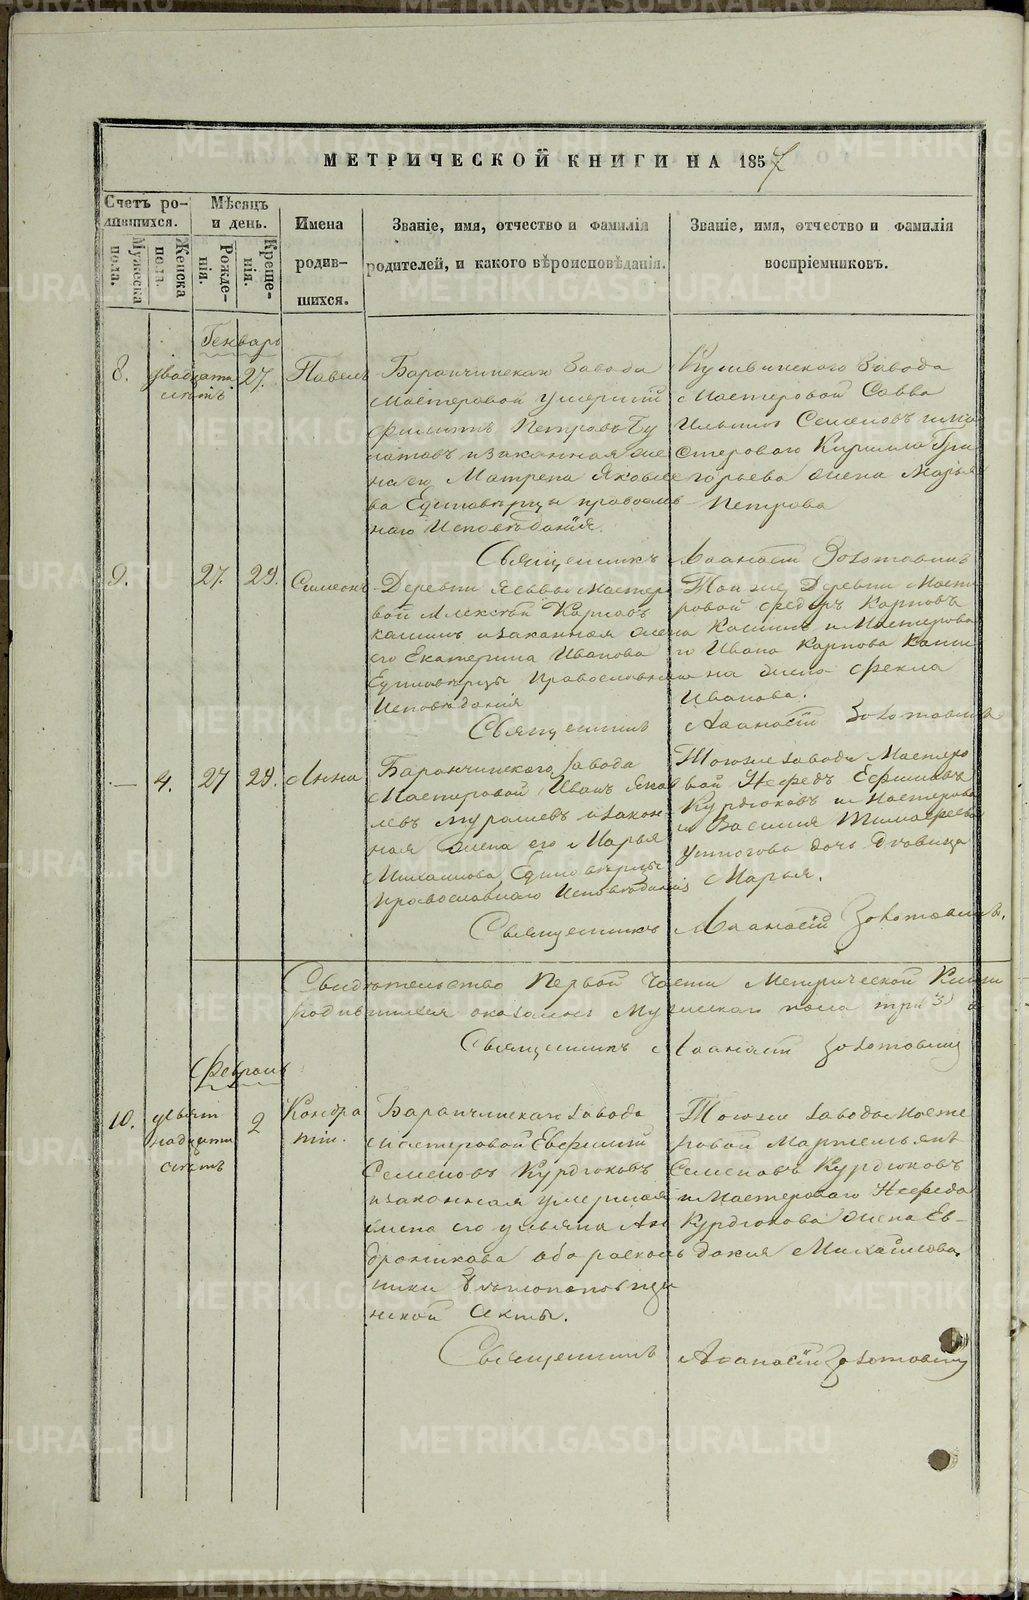 МЕТРИЧЕСКОЙ КНИГИ НА 1857
Счетъ ро-
дившихся.
Мужеска пола.
Женска пола.
Мѣсяцъ
и день.
Рожде-
нія.
Креще-
нія.
Имена
родив-
шихся.
Званіе, имя, отчество и фамилія
родителей, и какого вѣроисповѣданія.
Званіе, имя, отчество и фамилія
воспріемниковъ.
Генварь
8.
27.
Павелъ
Баранчинскаго Завода
Мастеровой умершій
Филиппъ Петровъ Бу
латовъ и законная же
на его Матрена Яковле
ва Единовѣрцы православ
наго Исповѣданія.
Кушвинскаго Завода
Мастеровой Савва
Ильинъ Семеновъ и ма
стероваго Кирилла Гри
горьева жена Марья
Петрова
Священникъ Афанасій Золотавинъ
9.
27.
29.
Симеонъ
Деревни Мастеро
вой Алексѣй Карповъ
и законная жена
его Екатерина Иванова
Единовѣрцы Православнаго
Исповѣданія
Той же Деревни Масте
ровой Федоръ Карповъ
и Мастерова
го Ивана Карпова
на жена Фекла
Иванова.
Священникъ Афанасій Золотавинъ
4.
27
29.
Анна
Баранчинскаго Завода
Мастеровой Иванъ Яков
левъ и закон
ная жена его Марья
Михайлова Единовѣрцы
Православнаго Исповѣданія
Тогоже завода Мастеро
вой Нефедъ Ефимовъ
Курдюковъ и Мастерова
го Василия Тимофеева
дочь Дѣвица
Марья.
Священникъ Афанасій Золотавинъ.
Свидѣтельство Первой Части Метрической Книги
родившихся оказалось Мужескаго пола три 3
Священникъ Афанасій Золотавинъ
Февраль
10.
девят
надцати
лѣтъ
2
Кондра
тій.
Баранчинскаго Завода
мастеровой Евфимій
Семеновъ Курдюковъ
и законная умершая
жена его Ульяна Ан
дроникова оба расколь
ники Бѣглопоповщи
нской Секты.
Тогоже Завода Масте
ровой
Семеновъ Курдюковъ
и Мастероваго Нефеда
Курдюкова Жена Ев-
докія Михайлова.
Священникъ Афанасій Золотавинъ
METRIKI.GASO-URAL.RU